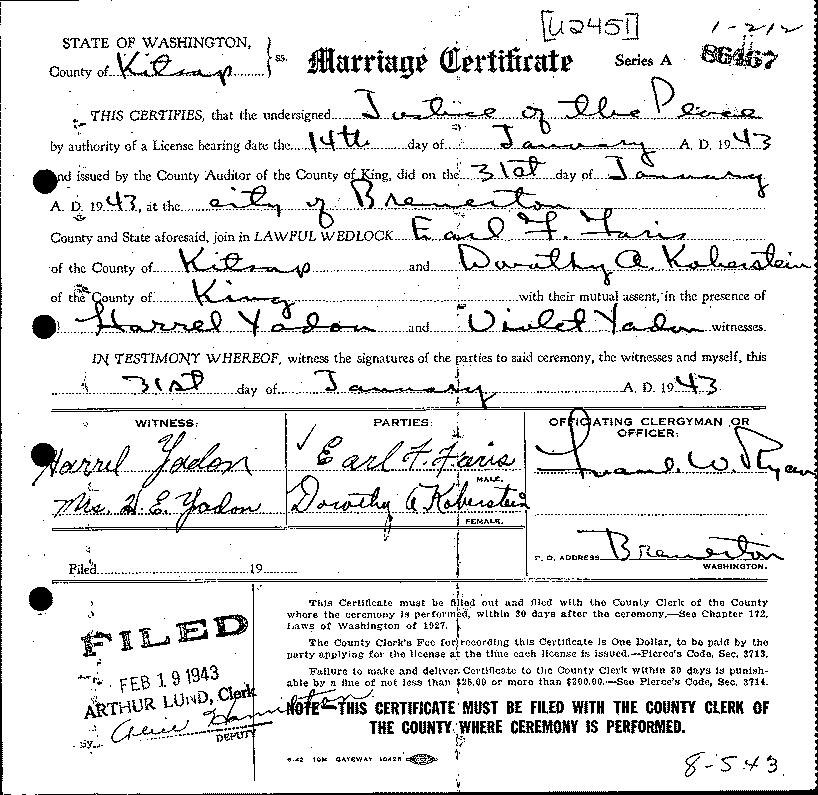 [U2451]
1-212
STATE OF WASHINGTON,
County of Kitsap } ss. Marriage Certificate Series A 86467
THIS CERTIFIES, that the undersigned Justice of the Peace
by authority of a License bearing date the 14th day of January A. D. 1943
and issued by the County Auditor of the County of King, did on the 31st day of January
A. D. 1943, at the city of Bremerton
County and State aforesaid, join in LAWFUL WEDLOCK Earl F. Faris
of the County of Kitsap and Dorothy A. Koberstein
of the County of King with their mutual assent, in the presence of
Harrel Yadon and Violet Yadon witnesses.
IN TESTIMONY WHEREOF, witness the signatures of the parties to said ceremony, the witnesses and myself, this
31st day of January A. D. 1943
WITNESS: PARTIES: OFFICIATING CLERGYMAN OR OFFICER:
Harrel Yadon ✓ Earl F. Faris W. Ryan
MALE.
Mrs. H. E. Yadon Dorothy A Koberstein
FEMALE.
P. O. ADDRESS Bremerton
WASHINGTON.
Filed 19
This Certificate must be filled out and filed with the County Clerk of the County
where the ceremony is performed, within 30 days after the ceremony.—See Chapter 172,
Laws of Washington of 1927.
The County Clerk's Fee for recording this Certificate is One Dollar, to be paid by the
party applying for the license at the time each license is issued.—Pierce's Code, Sec. 3713.
Failure to make and deliver Certificate to the County Clerk within 30 days is punish-
able by a fine of not less than $25.00 or more than $300.00.—See Pierce's Code, Sec. 3714.
NOTE—THIS CERTIFICATE MUST BE FILED WITH THE COUNTY CLERK OF
THE COUNTY WHERE CEREMONY IS PERFORMED.
FILED
FEB 19 1943
ARTHUR LUND, Clerk
By Alice Hamilton
DEPUTY
6-42 10M GATEWAY 10425
8-543